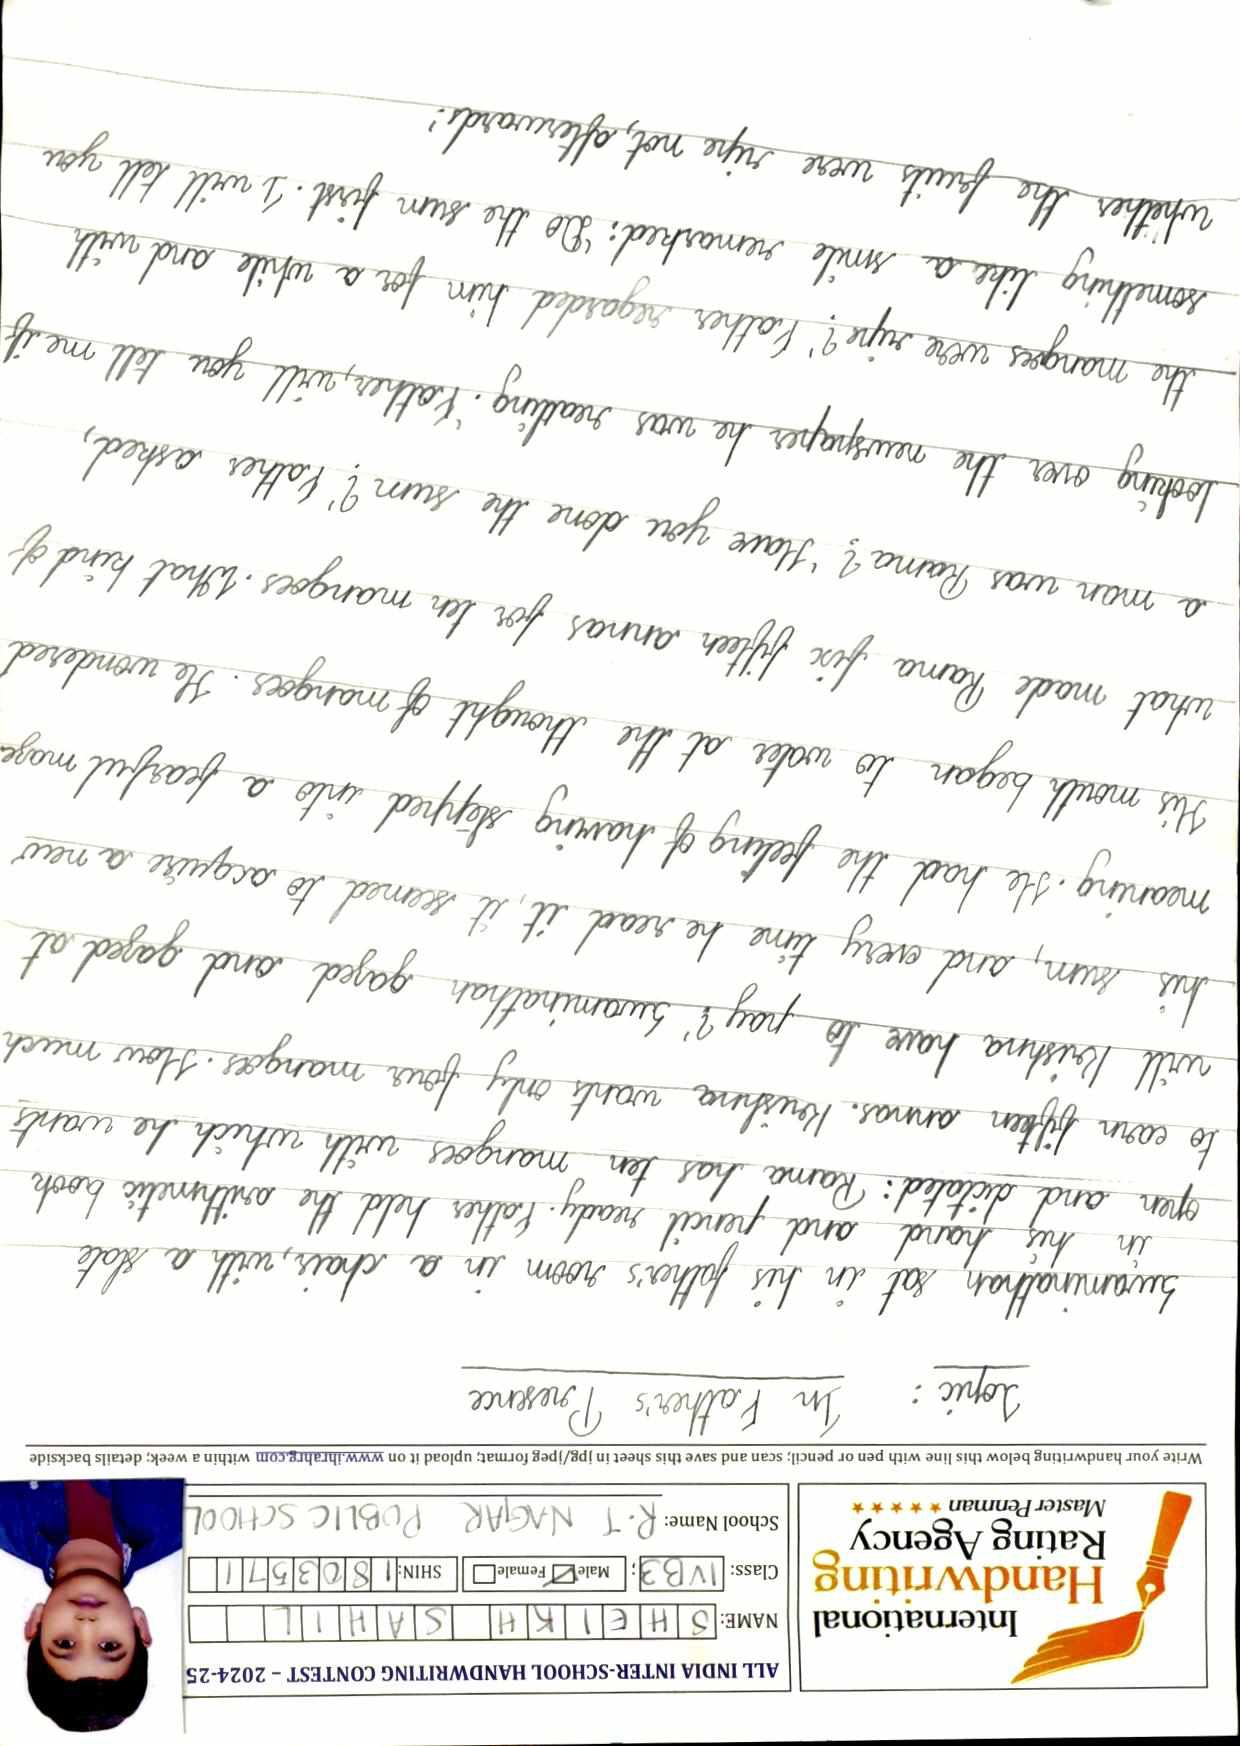 International
Handwriting
Rating Agency
Master Penman ★★★★★★
ALL INDIA INTER-SCHOOL HANDWRITING CONTEST – 2024-25
NAME: SHEIKH SAHIL
Class: IVB3; Male Female SHIN: 18035711
School Name: R.T NAGAR PUBLIC SCHOOL
Write your handwriting below this line with pen or pencil; scan and save this sheet in jpg/jpeg format; upload it on www.ihrahrg.com within a week; details backside
Topic : In Father's Presence
Swaminathan sat in his father's room in a chair, with a slate
in his hand and pencil ready. Father held the arithmetic book
open and dictated: Rama has ten mangoes with which he wants
to earn fifteen annas. Krishna wants only four mangoes. How much
will Krishna have to pay?' Swaminathan gazed and gazed at
his sum, and every time he read it, it seemed to acquire a new
meaning. He had the feeling of having stepped into a fearful maze
His mouth began to water at the thought of mangoes. He wondered
what made Rama fix fifteen annas for ten mangoes. What kind of
a man was Rama? 'Have you done the sum?' Father asked,
looking over the newspaper he was reading. 'Father, will you tell me if
the mangoes were ripe?' Father regarded him for a while and with
something like a smile remarked: 'Do the sum first. I will tell you
whether the fruits were ripe not, afterwards!